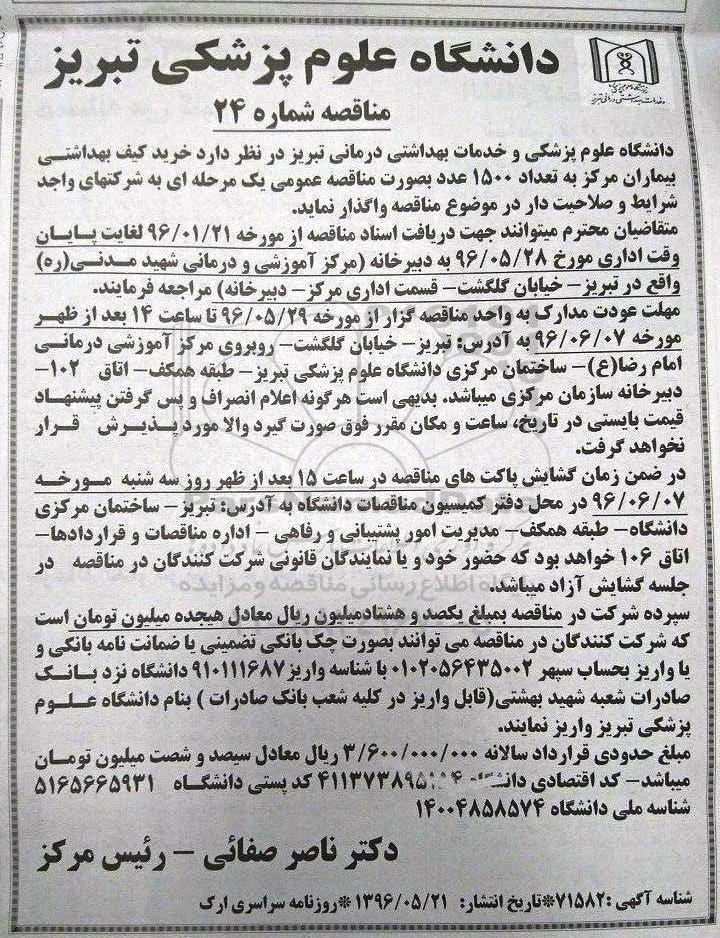 دانشگاه علوم پزشکی تبریز
مناقصه شماره ۲۴
دانشگاه علوم پزشکی و خدمات بهداشتی درمانی تبریز در نظر دارد خرید کیف بهداشتی
بیماران مرکز به تعداد ۱۵۰۰ عدد بصورت مناقصه عمومی یک مرحله ای به شرکتهای واجد
شرایط و صلاحیت دار در موضوع مناقصه واگذار نماید.
متقاضیان محترم میتوانند جهت دریافت اسناد مناقصه از مورخه ۹۶/۰۱/۲۱ لغایت پایان
وقت اداری مورخ ۹۶/۰۵/۲۸ به دبیرخانه (مرکز آموزشی و درمانی شهید مدنی(ره)
واقع در تبریز- خیابان گلگشت- قسمت اداری مرکز- دبیرخانه) مراجعه فرمایند.
مهلت عودت مدارک به واحد مناقصه گزار از مورخه ۹۶/۰۵/۲۹ تا ساعت ۱۴ بعد از ظهر
مورخه ۹۶/۰۶/۰۷ به آدرس: تبریز- خیابان گلگشت- روبروی مرکز آموزشی درمانی
امام رضا(ع)- ساختمان مرکزی دانشگاه علوم پزشکی تبریز- طبقه همکف- اتاق ۱۰۲-
دبیرخانه سازمان مرکزی میباشد. بدیهی است هرگونه اعلام انصراف و پس گرفتن پیشنهاد
قیمت بایستی در تاریخ، ساعت و مکان مقرر فوق صورت گیرد والا مورد پذیرش قرار
نخواهد گرفت.
در ضمن زمان گشایش پاکت های مناقصه در ساعت ۱۵ بعد از ظهر روز سه شنبه مورخه
۹۶/۰۶/۰۷ در محل دفتر کمیسیون مناقصات دانشگاه به آدرس: تبریز- ساختمان مرکزی
دانشگاه- طبقه همکف- مدیریت امور پشتیبانی و رفاهی - اداره مناقصات و قراردادها-
اتاق ۱۰۶ خواهد بود که حضور خود و یا نمایندگان قانونی شرکت کنندگان در مناقصه در
جلسه گشایش آزاد میباشد.
سپرده شرکت در مناقصه بمبلغ یکصد و هشتادمیلیون ریال معادل هیجده میلیون تومان است
که شرکت کنندگان در مناقصه می توانند بصورت چک بانکی تضمینی یا ضمانت نامه بانکی و
یا واریز بحساب سپهر ۰۱۰۲۰۵۶۴۳۵۰۰۲ با شناسه واریز۹۱۰۱۱۱۶۸۷ دانشگاه نزد بانک
صادرات شعبه شهید بهشتی(قابل واریز در کلیه شعب بانک صادرات ) بنام دانشگاه علوم
پزشکی تبریز واریز نمایند.
مبلغ حدودی قرارداد سالانه ۳/۶۰۰/۰۰۰/۰۰۰ ریال معادل سیصد و شصت میلیون تومان
میباشد- کد اقتصادی دانشگاه کد پستی دانشگاه ۵۱۶۵۶۶۵۹۳۱
شناسه ملی دانشگاه ۱۴۰۰۴۸۵۸۵۷۴
دکتر ناصر صفائی - رئیس مرکز
شناسه آگهی :۷۱۵۸۲*تاریخ انتشار: ۱۳۹۶/۰۵/۲۱ *روزنامه سراسری ارک